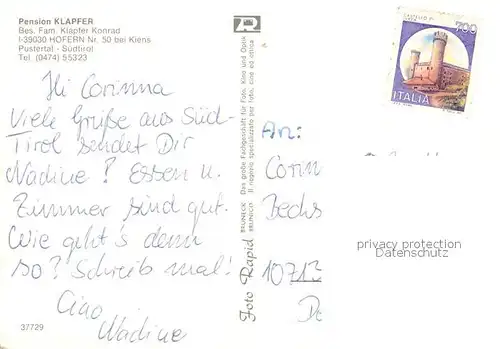 Pension KLAPFER
Bes. Fam. Klapfer Konrad
I-39030 HOFERN Nr. 50 bei Kiens
Pustertal - Südtirol
Tel. (0474) 55323
Hi Corinna
Viele Grüße aus Süd-
Tirol sendet Dir
Nadine! Essen u.
Zimmer sind gut.
Wie geht's denn
so? Schreib mal!
Ciao
Nadine
37729
Foto Rapid
BRUNECK Das große Fachgeschäft für Foto, Kino und Optik
BRUNICO Il negozio specializzato per foto, cine ed ottica
700
ITALIA
An:
Corin
Bechs
10713
privacy protection
Datenschutz